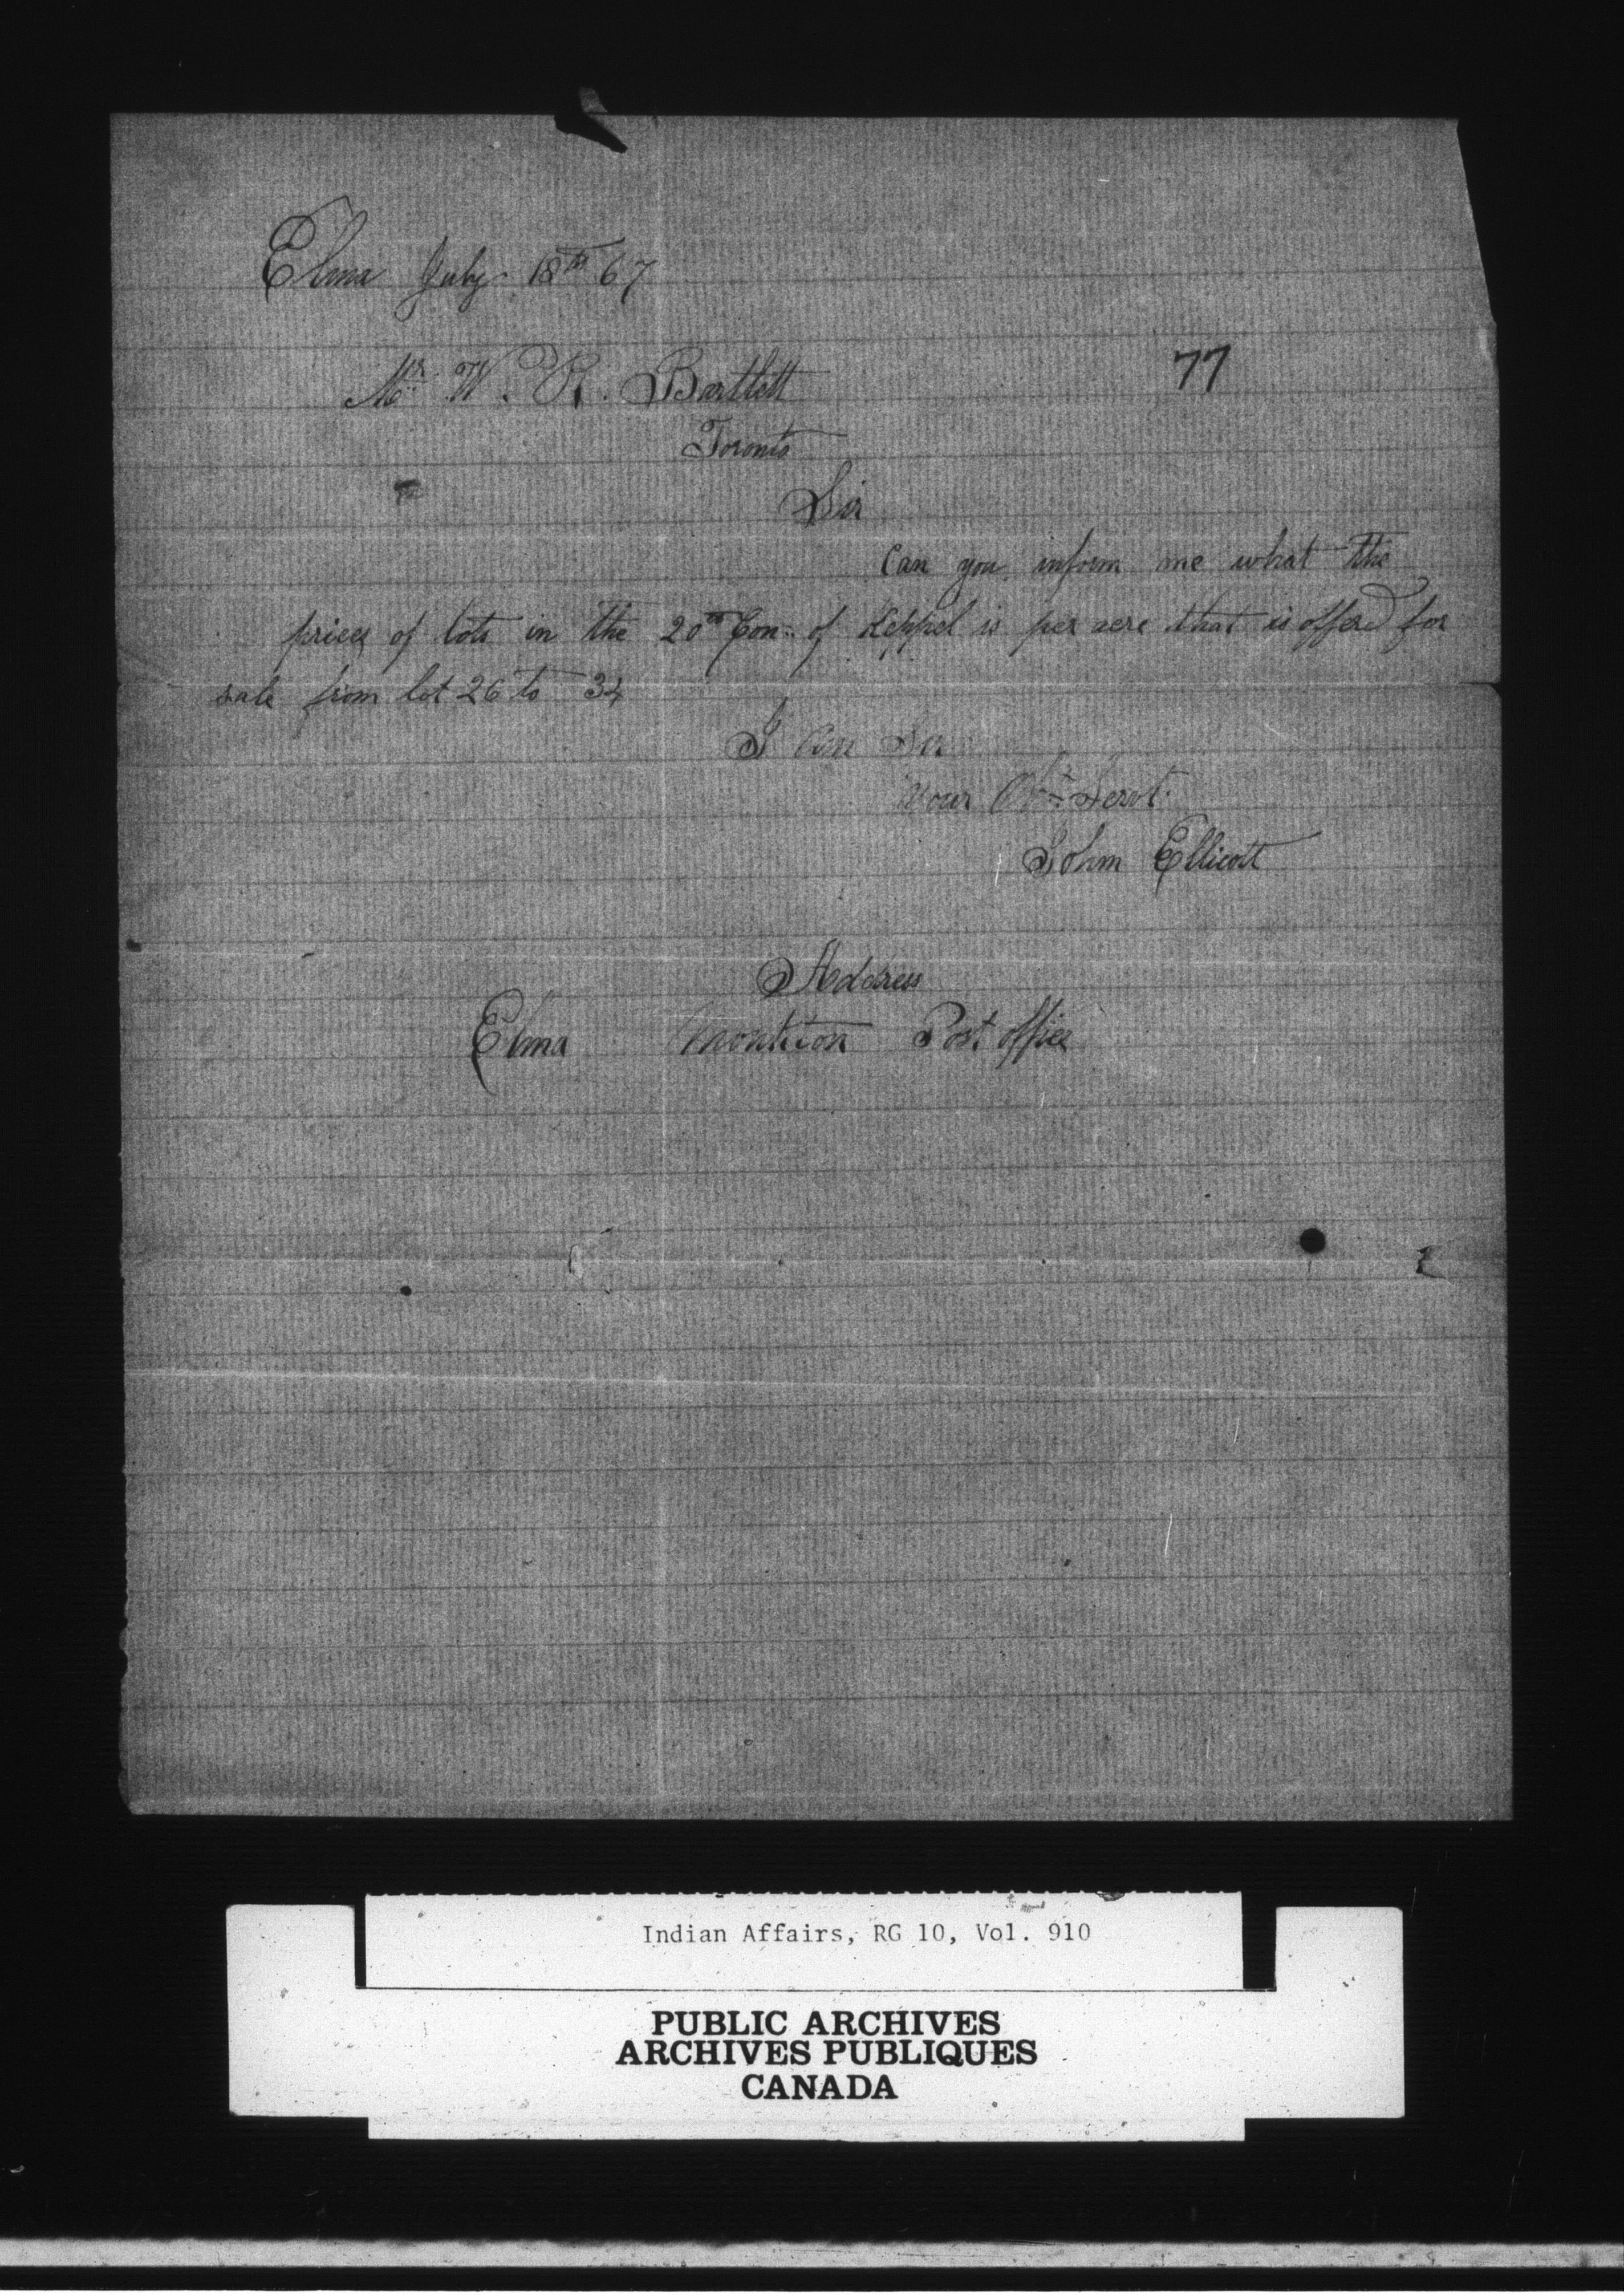 Elma July 18th 67
77
Mr. W. R. Bartlett
Toronto
Sir
Can you inform me what the
prices of lots in the 20th Con. of Keppel is per acre that is offerd for
sale from lot 26 to 34
I am Sir
Your Obt. Servt.
John Ellicott
Address
Elma Monkton Post office
Indian Affairs, RG 10, Vol. 910
PUBLIC ARCHIVES
ARCHIVES PUBLIQUES
CANADA